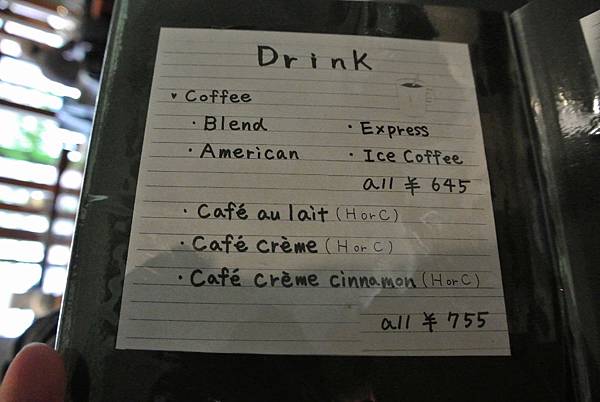 Drink
♥ Coffee
・Blend ・Express
・American ・Ice Coffee
all ¥ 645
・Café au lait (HorC)
・Café crème (HorC)
・Café crème cinnamon (HorC)
all ¥ 755